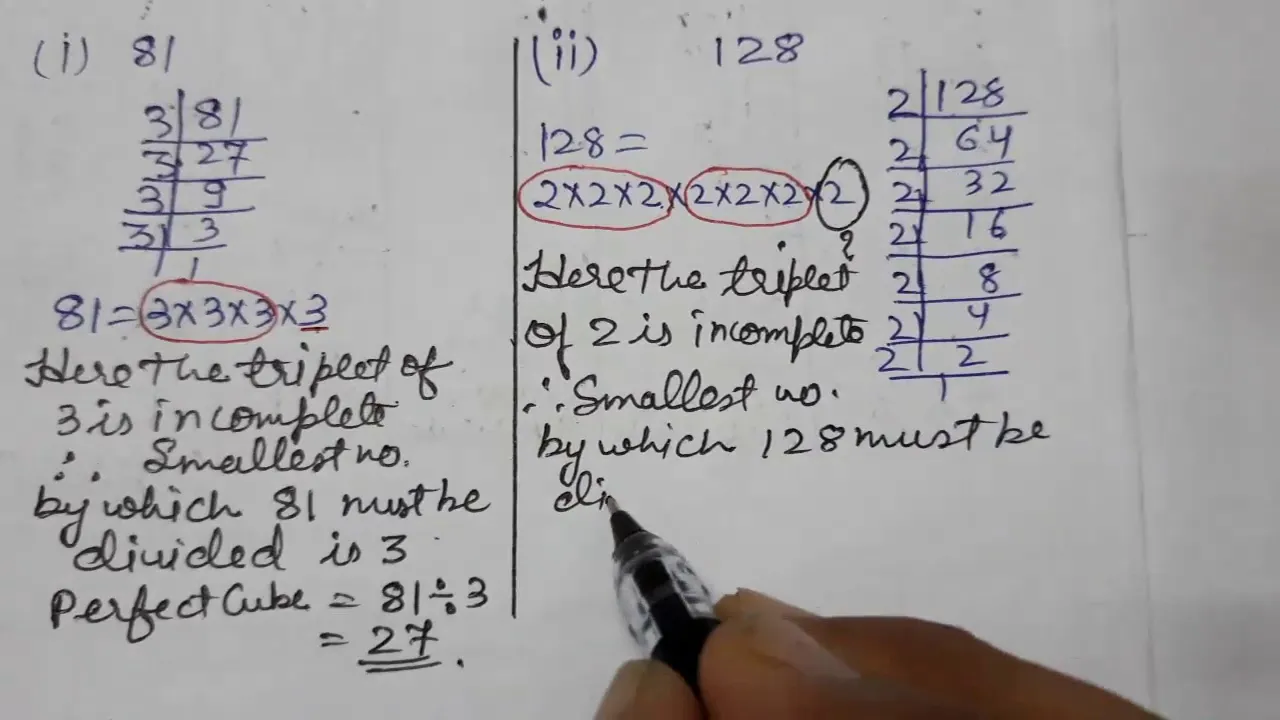 (i) 81
3 | 81
3 | 27
3 | 9
3 | 3
1
81 = 3×3×3 × 3
Here the triplet of
3 is incomplete
∴ Smallest no.
by which 81 must be
divided is 3
Perfect Cube = 81÷3
= 27.
(ii) 128
128 =
2×2×2×2×2×2×2
?
Here the triplet
of 2 is incomplete
∴ Smallest no.
by which 128 must be
di
2 | 128
2 | 64
2 | 32
2 | 16
2 | 8
2 | 4
2 | 2
1